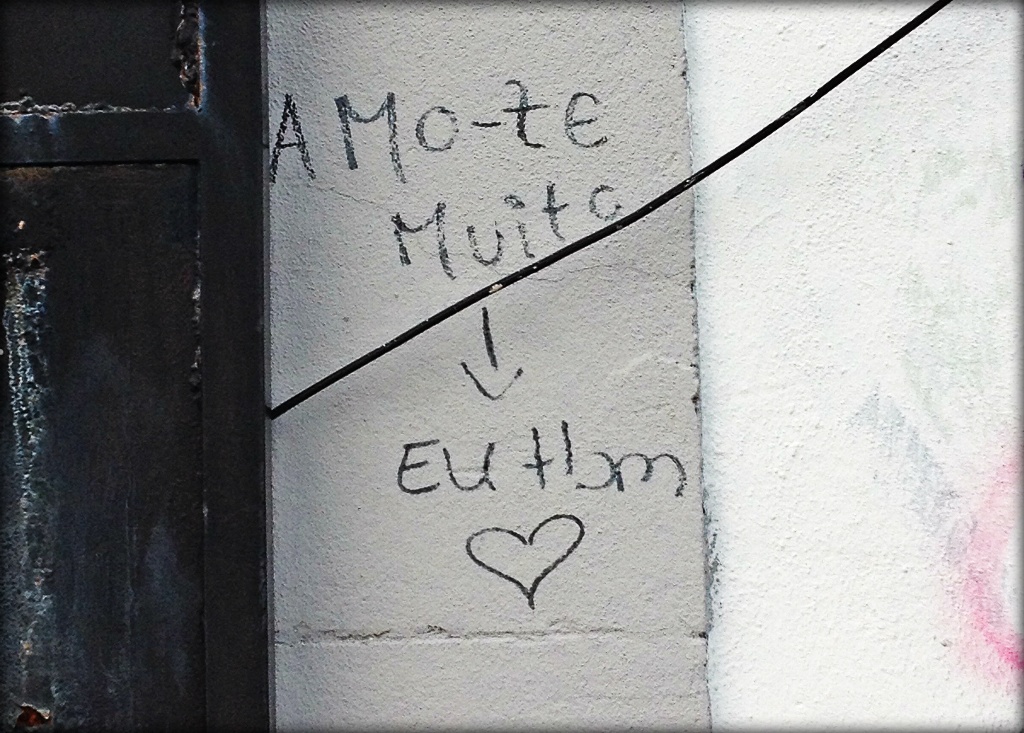 AMo-te
Muito
EU tbm